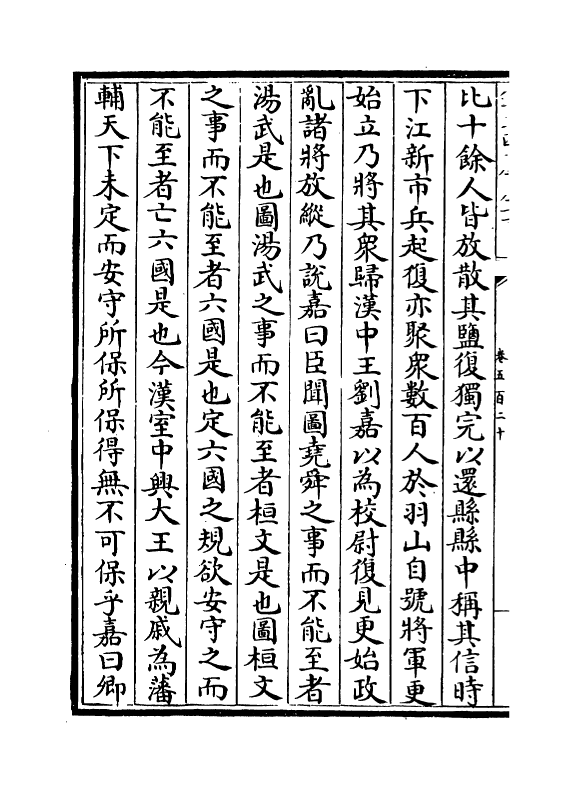 卷五百二十
比十餘人皆放散其鹽復獨完以還縣縣中稱其信時
下江新市兵起復亦聚衆數百人於羽山自號將軍更
始立乃將其衆歸漢中王劉嘉以為校尉復見更始政
亂諸將放縱乃說嘉曰臣聞圖堯舜之事而不能至者
湯武是也圖湯武之事而不能至者桓文是也圖桓文
之事而不能至者六國是也定六國之規欲安守之而
不能至者亡六國是也今漢室中興大王以親戚為藩
輔天下未定而安守所保所保得無不可保乎嘉曰卿